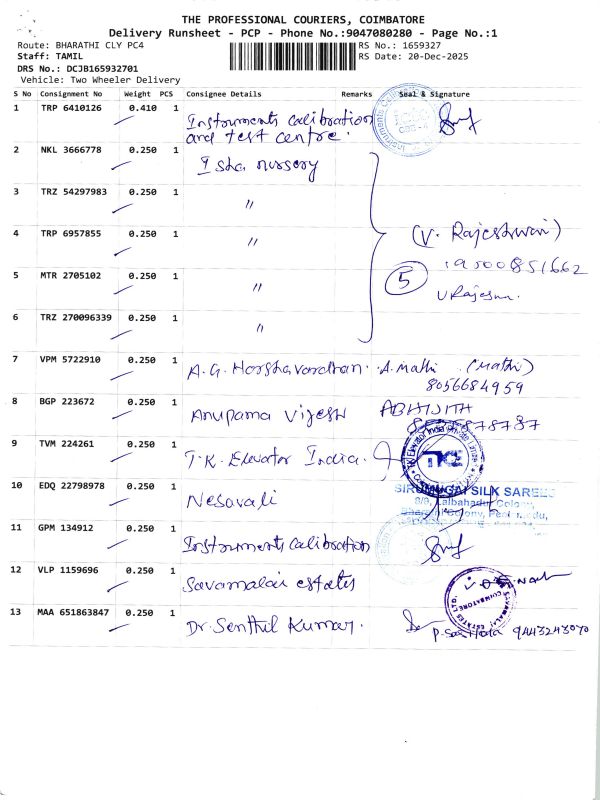 THE PROFESSIONAL COURIERS, COIMBATORE
Delivery Runsheet - PCP - Phone No.:9047080280 - Page No.:1
Route: BHARATHI CLY PC4 RS No.: 1659327
Staff: TAMIL RS Date: 20-Dec-2025
DRS No.: DCJB165932701
Vehicle: Two Wheeler Delivery
S No Consignment No Weight PCS Consignee Details Remarks Seal & Signature
1 TRP 6410126 0.410 1 Instruments calibration
and test centre.
2 NKL 3666778 0.250 1 Isha nursery
3 TRZ 54297983 0.250 1 "
4 TRP 6957855 0.250 1 " (V. Rajeshwari)
5 MTR 2705102 0.250 1 " 5 9500851662
6 TRZ 270096339 0.250 1 "
7 VPM 5722910 0.250 1 A.G. Harshavardhan. A. Mathi (Mathi)
8056684959
8 BGP 223672 0.250 1 Anupama Vijesh ABHIJITH
9 TVM 224261 0.250 1 T.K. Elevator India.
TKE
10 EDQ 22798978 0.250 1 Nesavali
SIRUMUGAI SILK SAREES
Lalbahadur Colony,
11 GPM 134912 0.250 1 Instruments calibration
12 VLP 1159696 0.250 1 Savamalai estates
13 MAA 651863847 0.250 1 Dr. Senthil Kumar.
9443243070